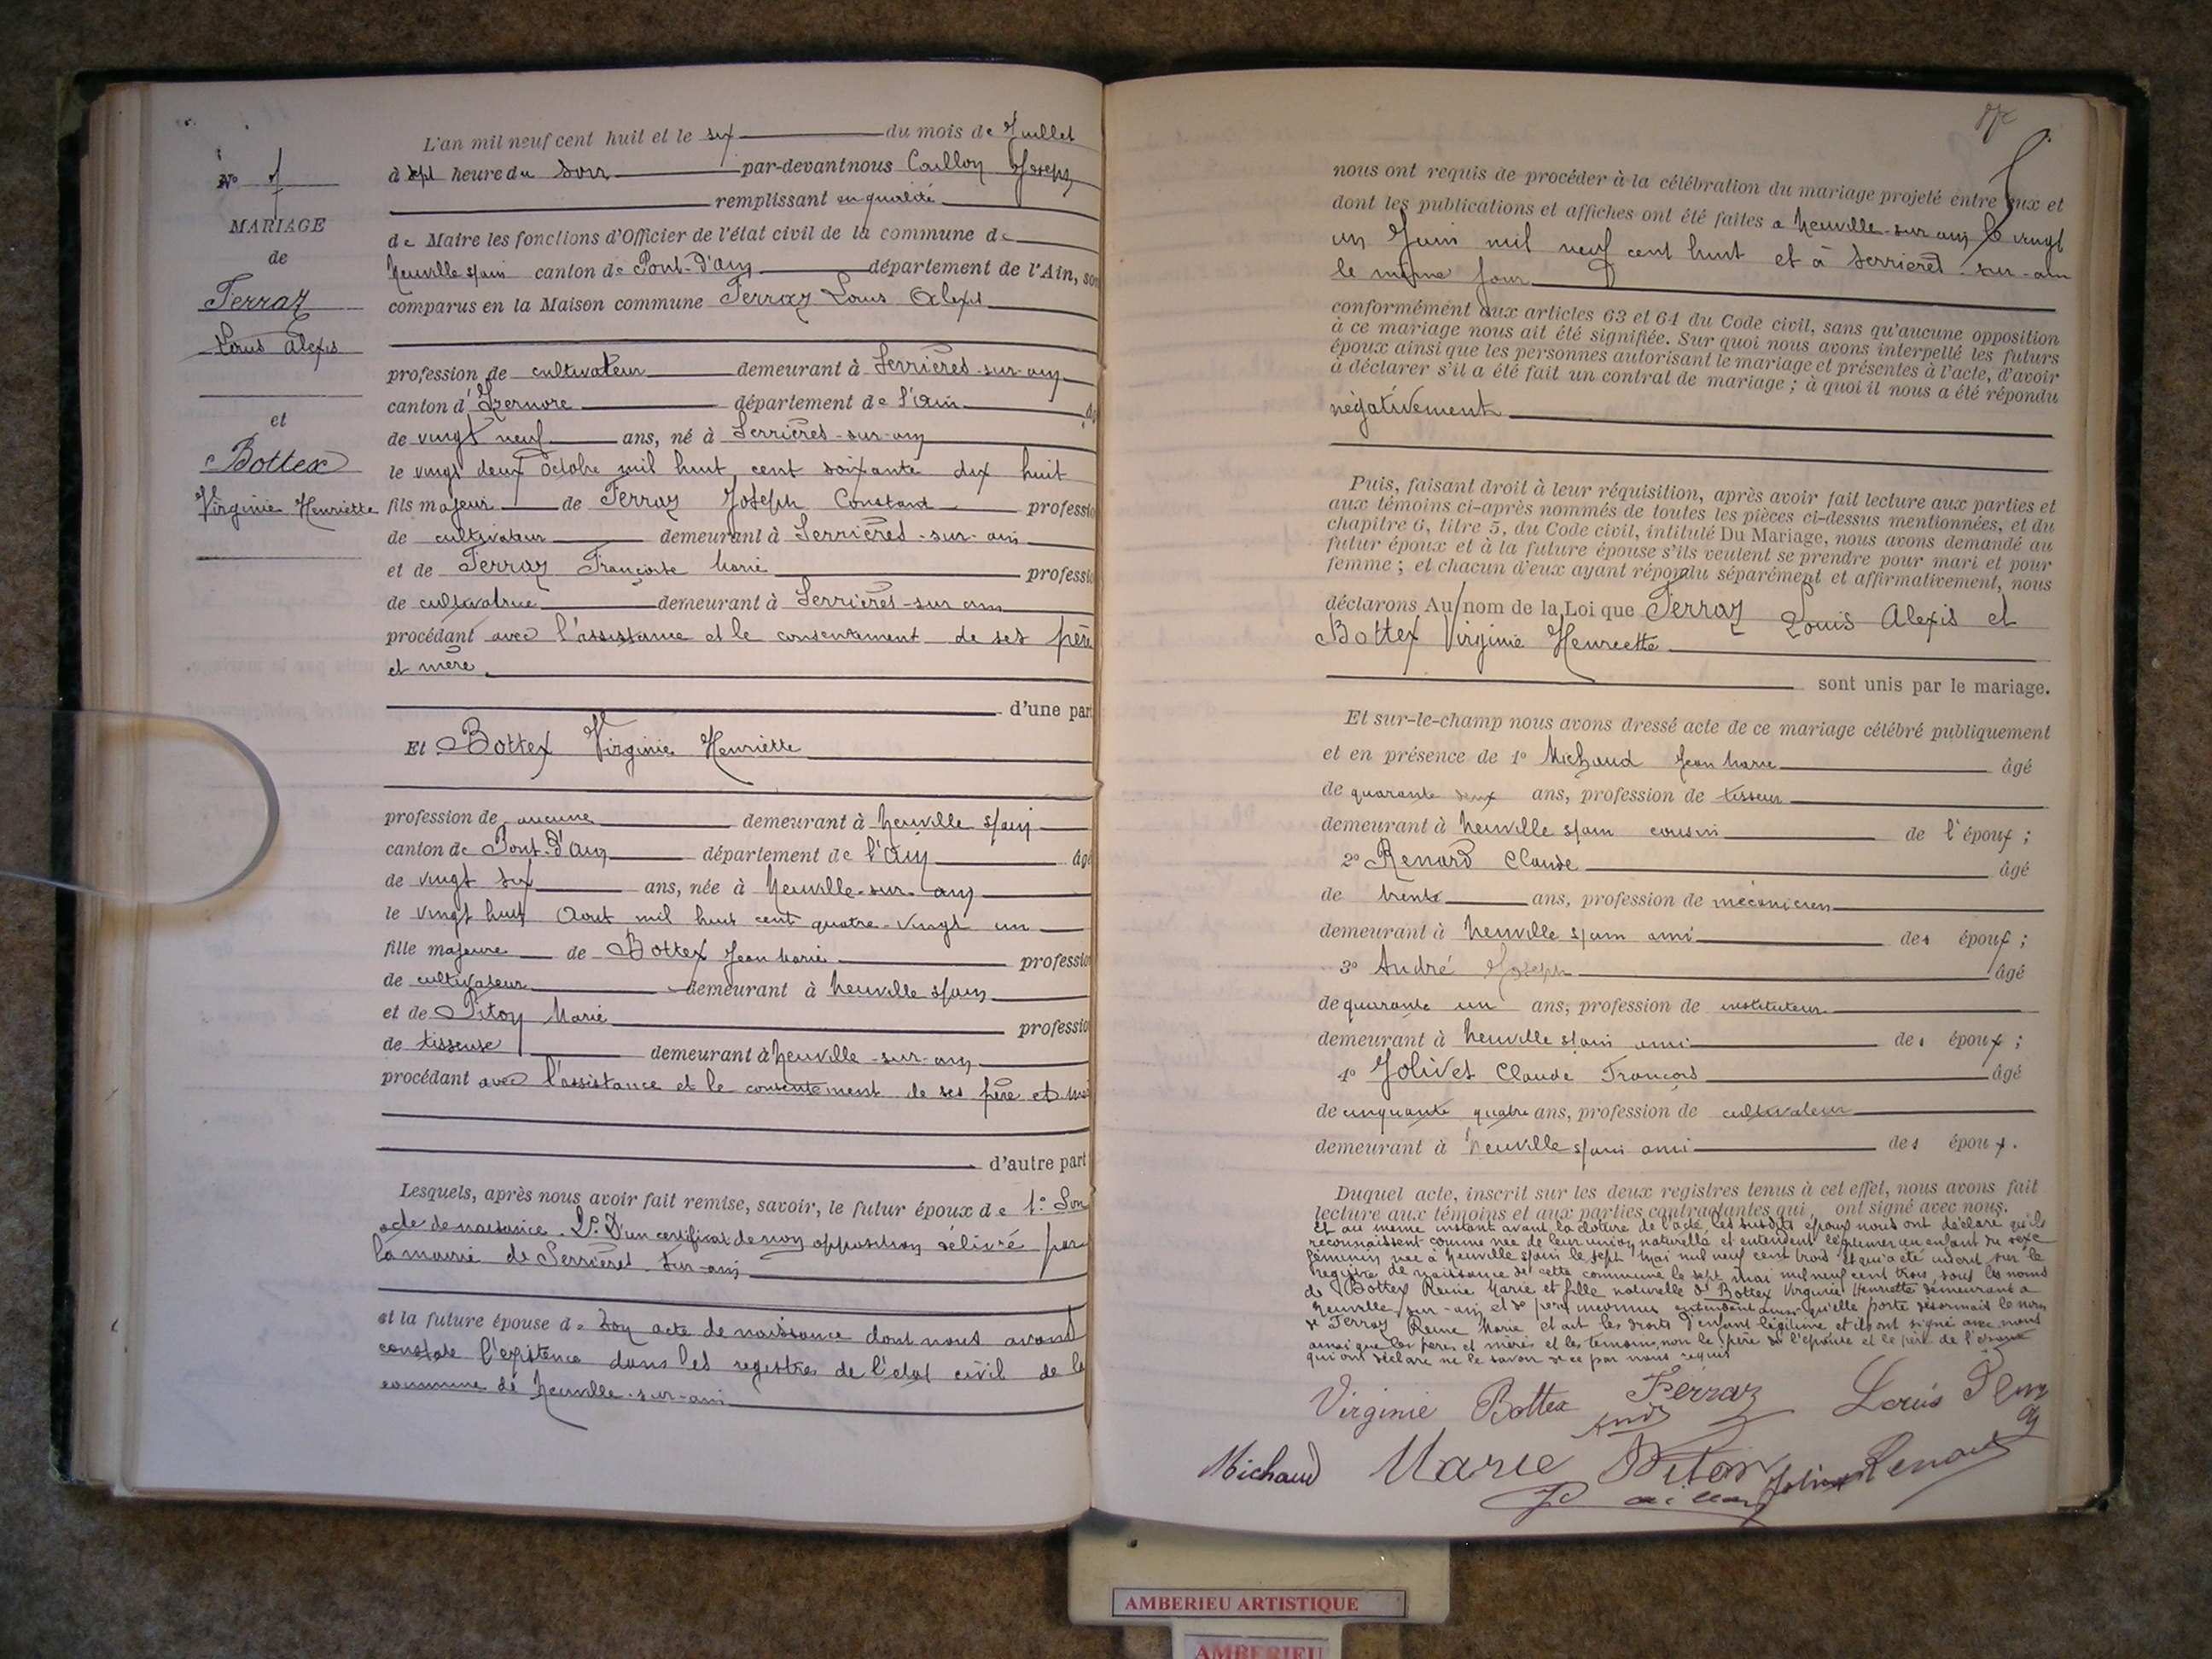 L'an mil neuf cent huit et le six du mois de Juillet
N°
à sept heure du soir par-devant nous Caillon Joseph
remplissant en qualité
MARIAGE
de Maire les fonctions d'Officier de l'état civil de la commune de
de
Neuville s/ain canton de Pont-d'ain département de l'Ain, son
Ferraz
comparus en la Maison commune Ferraz Louis Alexis
Louis Alexis
profession de cultivateur demeurant à Serrières-sur-ain
canton d'Izernore département de l'ain
et
de vingt neuf ans, né à Serrières-sur-ain
Bottex
le vingt deux octobre mil huit cent soixante dix huit
Virginie Henriette
fils majeur de Ferraz Joseph Constant professio
de cultivateur demeurant à Serrières-sur-ain
et de Ferraz Françoise Marie professio
de cultivatrice demeurant à Serrières-sur ain
procédant avec l'assistance et le consentement de ses père
et mère
d'une par
Et Bottex Virginie Henriette
profession de aucune demeurant à Neuville s/ain
canton de Pont-d'Ain département de l'Ain âgé
de vingt six ans, née à Neuville-sur-ain
le vingt huit Aout mil huit cent quatre-vingt un
fille majeure de Bottex Jean Marie professio
de cultivateur demeurant à Neuville s/ain
et de Piton Marie professio
de tisseuse demeurant à Neuville-sur-ain
procédant avec l'assistance et le consentement de ses père et
d'autre part
Lesquels, après nous avoir fait remise, savoir, le futur époux de 1° Son
acte de naissance. 2° D'un certificat de non opposition délivré par
la mairie de Serrières-sur-ain
et la future épouse de Son acte de naissance dont nous avons
constaté l'existence dans les registres de l'état civil de la
commune de Neuville-sur-ain
nous ont requis de procéder à la célébration du mariage projeté entre eux et
dont les publications et affiches ont été faites à Neuville-sur ain le vingt
un Juin mil neuf cent huit et à Serrières-sur-ain
le même jour
conformément aux articles 63 et 64 du Code civil, sans qu'aucune opposition
à ce mariage nous ait été signifiée. Sur quoi nous avons interpellé les futurs
époux ainsi que les personnes autorisant le mariage et présentes à l'acte, d'avoir
à déclarer s'il a été fait un contrat de mariage ; à quoi il nous a été répondu
négativement
Puis, faisant droit à leur réquisition, après avoir fait lecture aux parties et
aux témoins ci-après nommés de toutes les pièces ci-dessus mentionnées, et du
chapitre 6, titre 5, du Code civil, intitulé Du Mariage, nous avons demandé au
futur époux et à la future épouse s'ils veulent se prendre pour mari et pour
femme ; et chacun d'eux ayant répondu séparément et affirmativement, nous
déclarons Au nom de la Loi que Ferraz Louis Alexis et
Bottex Virginie Henriette
sont unis par le mariage.
Et sur-le-champ nous avons dressé acte de ce mariage célébré publiquement
et en présence de 1° Michaud Jean Marie âgé
de quarante deux ans, profession de tisseur
demeurant à Neuville s/ain cousin de l'époux ;
2° Renard Claude âgé
de trente ans, profession de mécanicien
demeurant à Neuville s/ain ami des époux ;
3° André Joseph âgé
de quarante un ans, profession de instituteur
demeurant à Neuville s/ain ami des époux ;
4° Jolivet Claude François âgé
de cinquante quatre ans, profession de cultivateur
demeurant à Neuville s/ain ami des époux.
Duquel acte, inscrit sur les deux registres tenus à cet effet, nous avons fait
lecture aux témoins et aux parties contractantes qui ont signé avec nous.
Et au même instant avant la cloture de l'acte les susdits époux nous ont déclaré qu'ils
reconnaissent comme née de leur union naturelle et entendent légitimer un enfant du sexe
féminin née à Neuville s/ain le sept Mai mil neuf cent trois et qui a été inscrit sur le
registre de naissance de cette commune le sept Mai mil neuf cent trois sous les noms
de Bottex Reine Marie et fille naturelle de Bottex Virginie Henriette demeurant à
Neuville-sur-ain et de père inconnu entendent aussi qu'elle porte désormais le nom
de Ferraz Reine Marie et ait les droits d'enfant légitime et ils ont signé avec nous
ainsi que les pères et mères et les témoins non le père de l'épouse et le père de
qui ont déclaré ne le savoir de ce par nous requis
Virginie Bottex Ferraz Louis
Michaud Marie Piton Jolivet Renard
AMBERIEU ARTISTIQUE
AMBERIEU